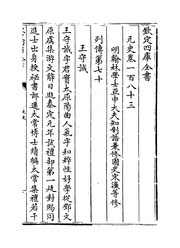 欽定四庫全書
元史卷一百八十三
明翰林學士亞中大夫知制誥兼修國史宋濂等修
列傳第七十
王守誠
王守誠字君實太原陽曲人氣宇和粹性好學從鄧文
原虞集游文辭日進泰定元年試禮部第一廷對賜同
進士出身授秘書郎遷太常博士續編太常集禮若干